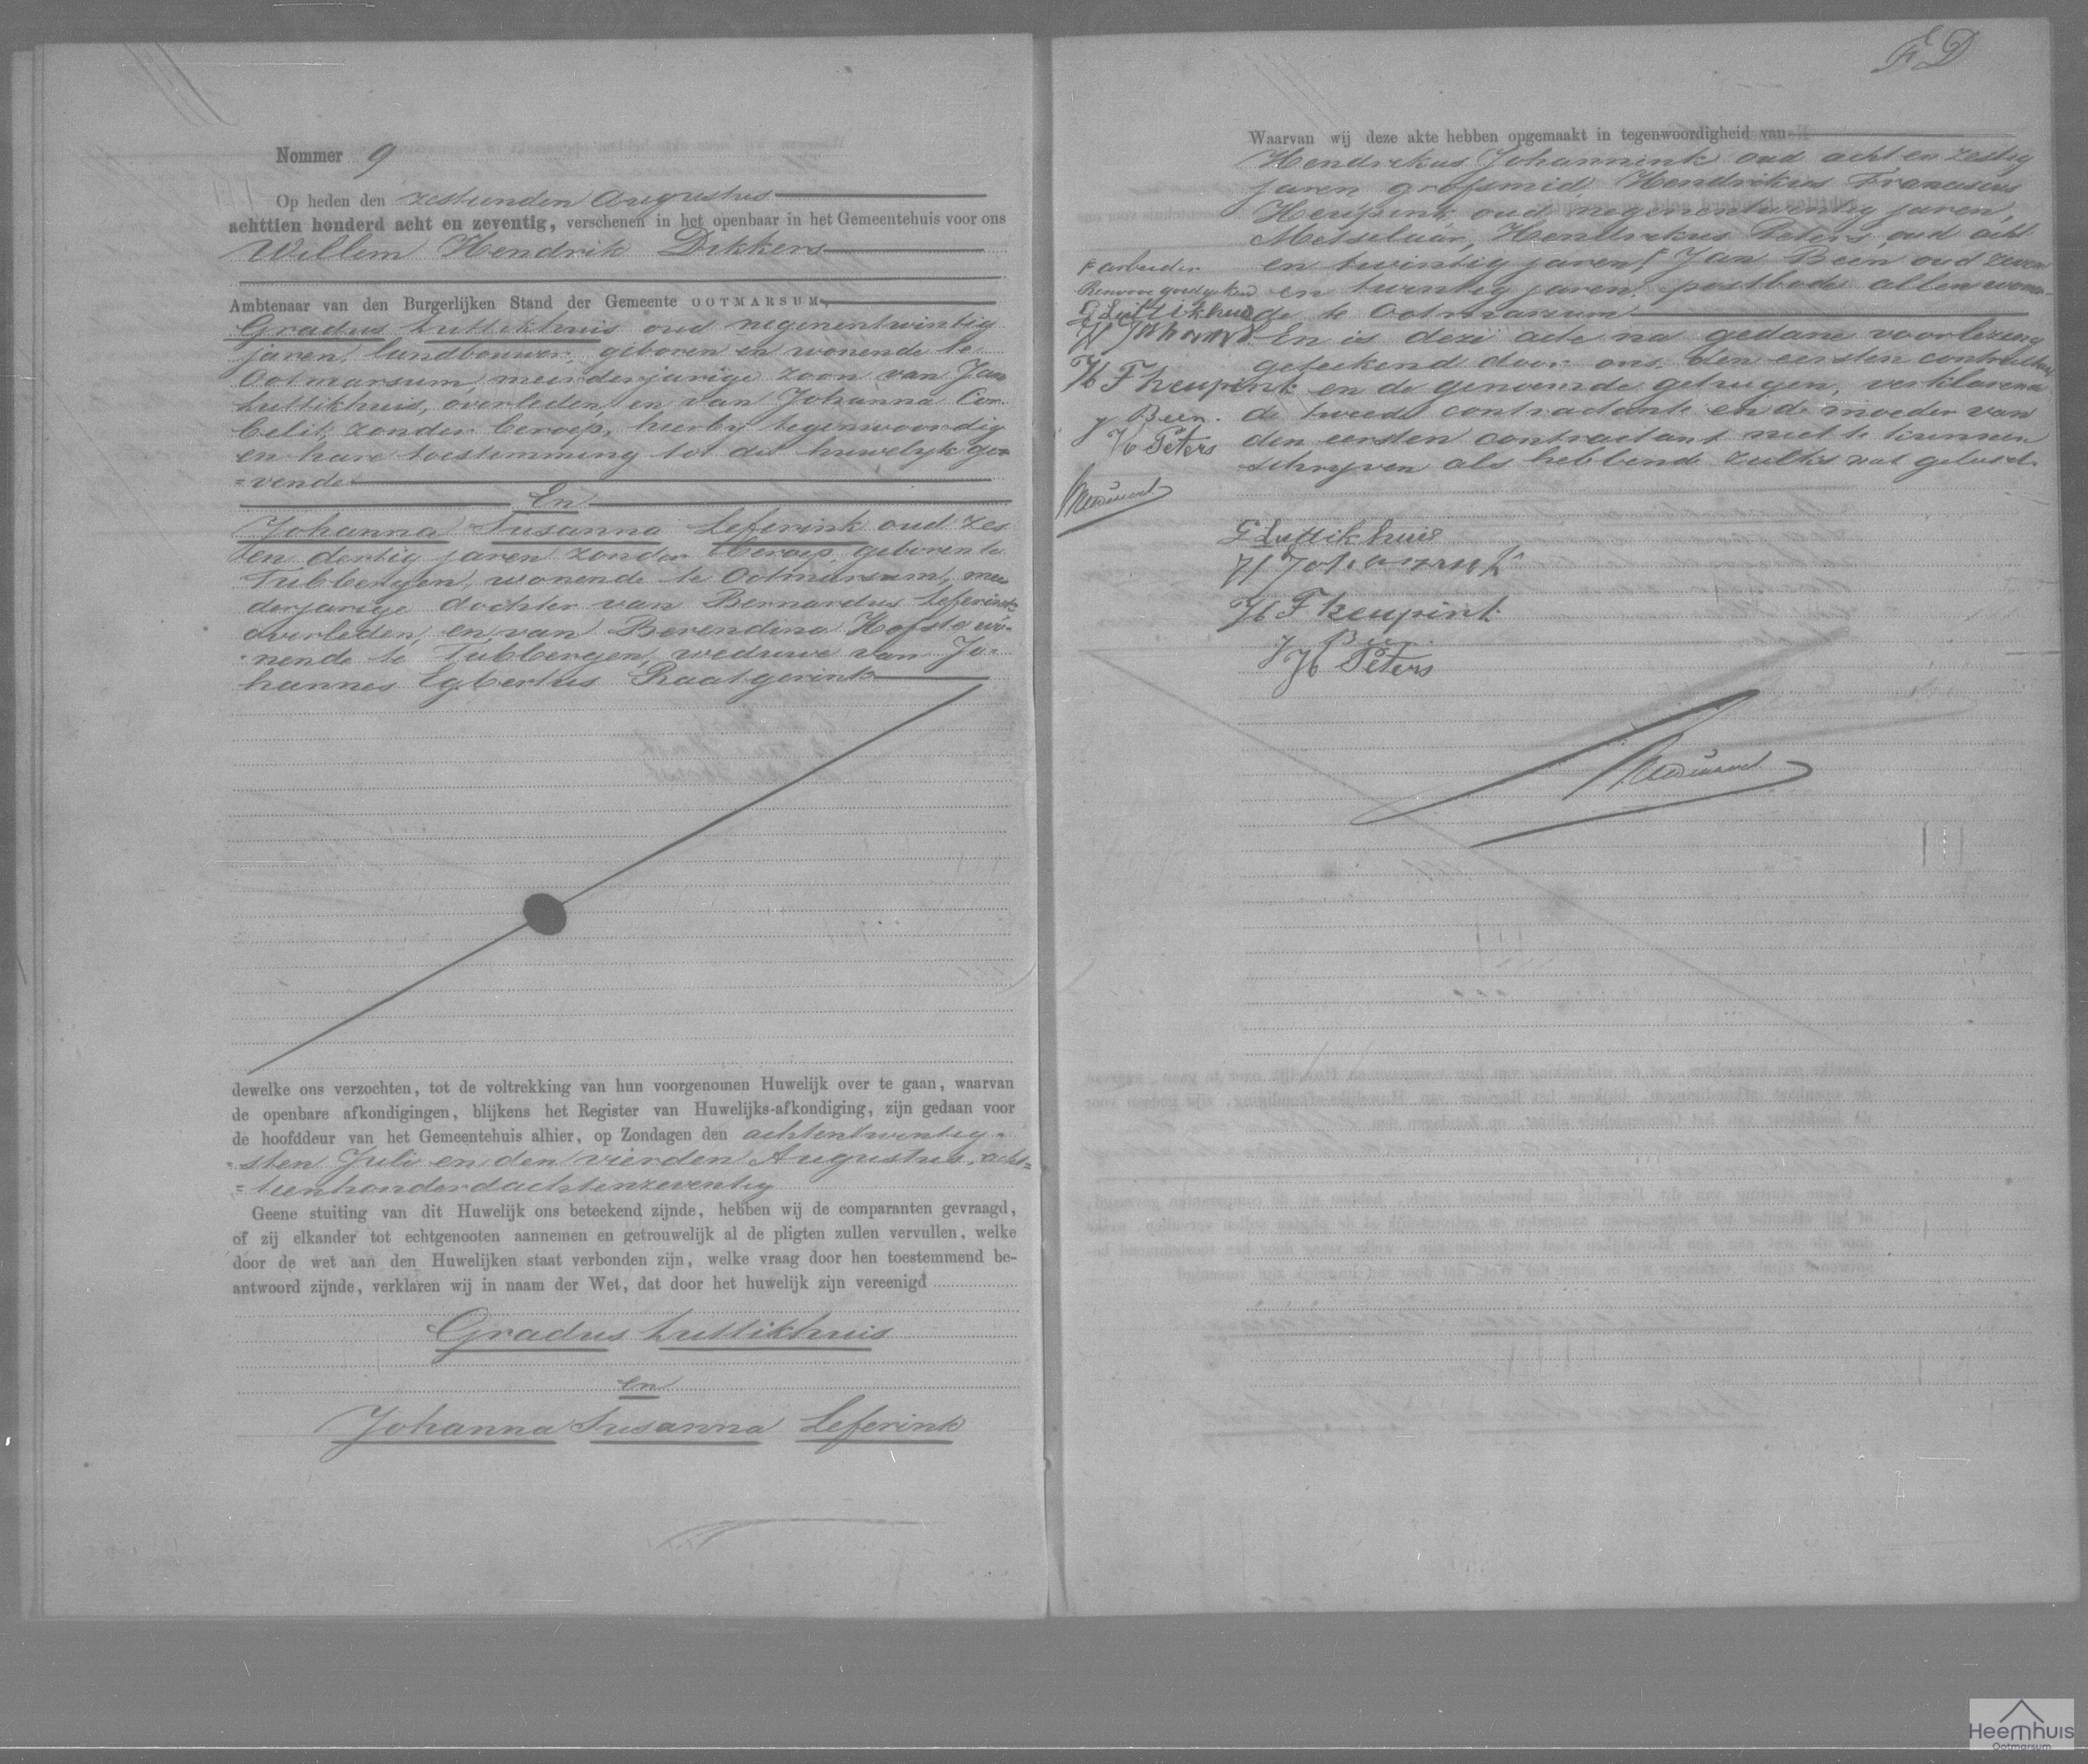 Nommer 9
Op heden den zestienden Augustus
achttien honderd acht en zeventig, verschenen in het openbaar in het Gemeentehuis voor ons
Willem Hendrik Dikkers
Ambtenaar van den Burgerlijken Stand der Gemeente OOTMARSUM,
Gradus Luttikhuis oud negenentwintig
jaren, landbouwer, geboren en wonende te
Ootmarsum, meerderjarige zoon van Jan
Luttikhuis, overleden, en van Johanna
zonder beroep, hierby tegenwoordig
en hare toestemming tot dit huwelyk ge-
=vende
En
Johanna Susanna Leferink oud zes
en dertig jaren zonder beroep, geboren te
Tubbergen, wonende te Ootmarsum, meer
derjarige dochter van Bernardus Leferink
overleden, en van Berendina Hofste wo-
nende te Tubbergen, weduwe van Jo-
hannes Egbertus Raatgerink
dewelke ons verzochten, tot de voltrekking van hun voorgenomen Huwelijk over te gaan, waarvan
de openbare afkondigingen, blijkens het Register van Huwelijks-afkondiging, zijn gedaan voor
de hoofddeur van het Gemeentehuis alhier, op Zondagen den achtentwintig-
=sten Juli en den vierden Augustus, acht=
=tienhonderdachtenzeventig
Geene stuiting van dit Huwelijk ons beteekend zijnde, hebben wij de comparanten gevraagd,
of zij elkander tot echtgenooten aannemen en getrouwelijk al de pligten zullen vervullen, welke
door de wet aan den Huwelijken staat verbonden zijn, welke vraag door hen toestemmend be-
antwoord zijnde, verklaren wij in naam der Wet, dat door het huwelijk zijn vereenigd
Gradus Luttikhuis
en
Johanna Susanna Leferink
F D
Waarvan wij deze akte hebben opgemaakt in tegenwoordigheid van
Hendrikus Johannink oud acht en zestig
jaren grofsmid Hendrikus Franciscus
Heupink oud negenentwintig jaren,
Metselaar, Hendrikus Peters oud acht
en twintig jaren, Jan Been oud zeven
en twintig jaren, postbode allen wonen-
de te Ootmarsum
En is deze acte na gedane voorlezing
geteekend door ons, den eersten contractant
en de genoemde getuigen, verklarende
de tweede contractante en de moeder van
den eersten contractant niet te kunnen
schryven als hebbende zulks niet geleerd.
arbeider
G Luttikhuis
H F heupink
J Been
H Peters
G Luttikhuis
H Johannink
H F heupink
J Been
H Peters
Heemhuis
Ootmarsum